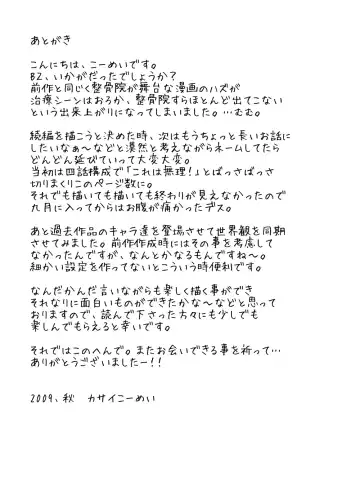 あとがき
こんにちは、こーめいです。
B2、いかがだったでしょうか?
前作と同じく整骨院が舞台な漫画のハズが
治療シーンはおろか、整骨院すらほとんど出てこない
という出来上がりになってしまいました…むむ。
続編を描こうと決めた時、次はもうちょっと長いお話に
したいなぁ~などと漠然と考えながらネームしてたら
どんどん延びていって大変大変。
当初は四話構成で「これは無理!」とばっさばっさ
切りまくりこのページ数に。
それでも描いても描いても終わりが見えなかったので
九月に入ってからはお腹が痛かったデス。
あと過去作品のキャラ達を登場させて世界観を同期
させてみました。前作作成時にはその事を考慮して
なかったんですが、なんとかなるもんですね~。
細かい設定を作ってないとこういう時便利です。
なんだかんだ言いながらも楽しく描く事ができ
それなりに面白いものができたかな~などと思って
おりますので、読んで下さった方々にも少しでも
楽しんでもらえると幸いです。
それではこのへんで。またお会いできる事を祈って…
ありがとうございましたー!!
2009、秋 カサイこーめい